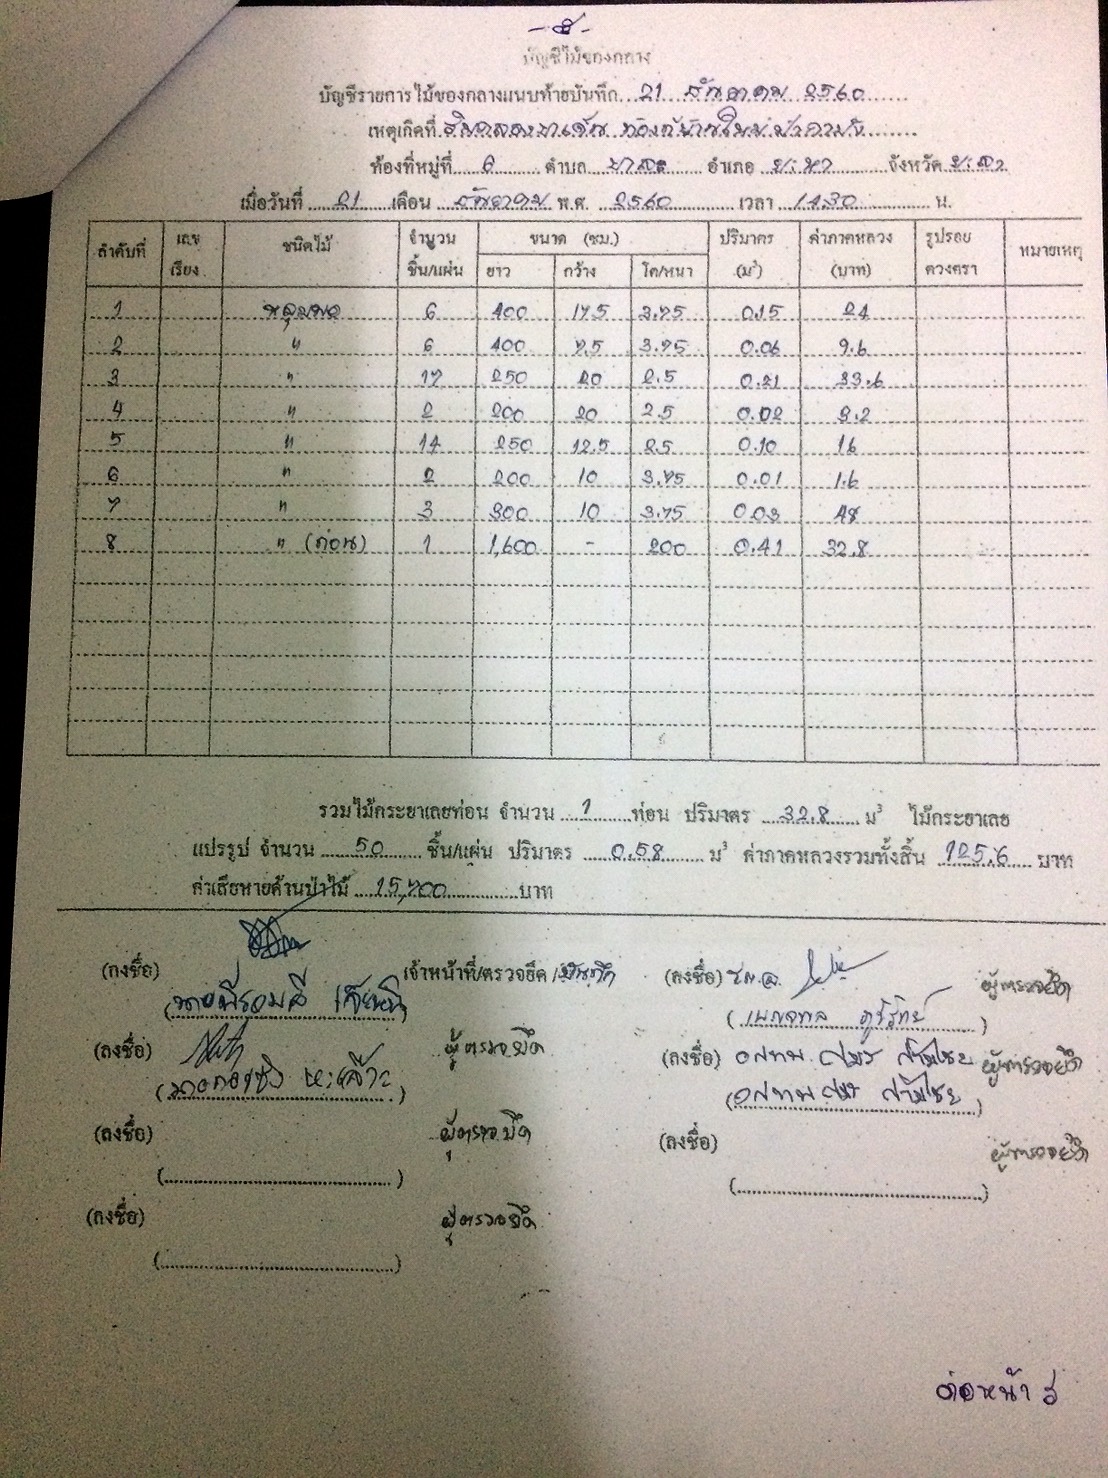 - ๕ -
บัญชีไม้ของกลาง
บัญชีรายการไม้ของกลางแนบท้ายบันทึก 21 ธันวาคม 2560
เหตุเกิดที่
ท้องที่หมู่ที่ 6 ตำบล บาละ อำเภอ จังหวัด ยะลา
เมื่อวันที่ 21 เดือน ธันวาคม พ.ศ. 2560 เวลา 14.30 น.
ลำดับที่ เลขเรียง ชนิดไม้ จำนวน ชิ้น/แผ่น ขนาด (ซม.) ยาว กว้าง โต/หนา ปริมาตร (ม³) ค่าภาคหลวง (บาท) รูปรอยดวงตรา หมายเหตุ
1 หลุมพอ 6 400 17.5 3.75 0.15 24
2 " 6 400 7.5 3.75 0.06 9.6
3 " 17 250 20 2.5 0.21 33.6
4 " 2 200 20 2.5 0.02 3.2
5 " 14 250 12.5 2.5 0.10 16
6 " 2 200 10 3.75 0.01 1.6
7 " 3 300 10 3.75 0.03 48
8 " (ท่อน) 1 1,600 - 200 0.41 32.8
รวมไม้กระยาเลยท่อน จำนวน 1 ท่อน ปริมาตร 32.8 ม³ ไม้กระยาเลย
แปรรูป จำนวน 50 ชิ้น/แผ่น ปริมาตร 0.58 ม³ ค่าภาคหลวงรวมทั้งสิ้น 125.6 บาท
ค่าเสียหายด้านป่าไม้ 15,700 บาท
(ลงชื่อ) เจ้าหน้าที่/ตรวจยึด/บันทึก (ลงชื่อ) ผู้ตรวจยึด
(ลงชื่อ) ผู้ตรวจยึด (ลงชื่อ) อสทพ. ผู้ตรวจยึด
(ลงชื่อ) ผู้ตรวจยึด (ลงชื่อ) ผู้ตรวจยึด
(ลงชื่อ) ผู้ตรวจยึด
ต่อหน้า ๖